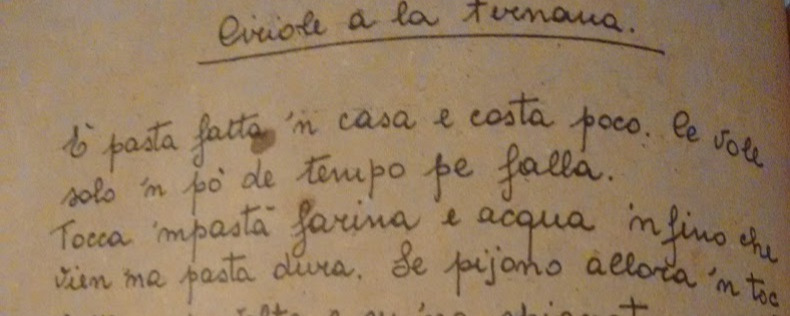 Ciriole a la ternana.
E' pasta fatta 'n casa e costa poco. Ce vole
solo 'n pò de tempo pe falla.
Tocca 'mpastà farina e acqua 'nfino che
vien 'na pasta dura. Se pijano allora 'n toc